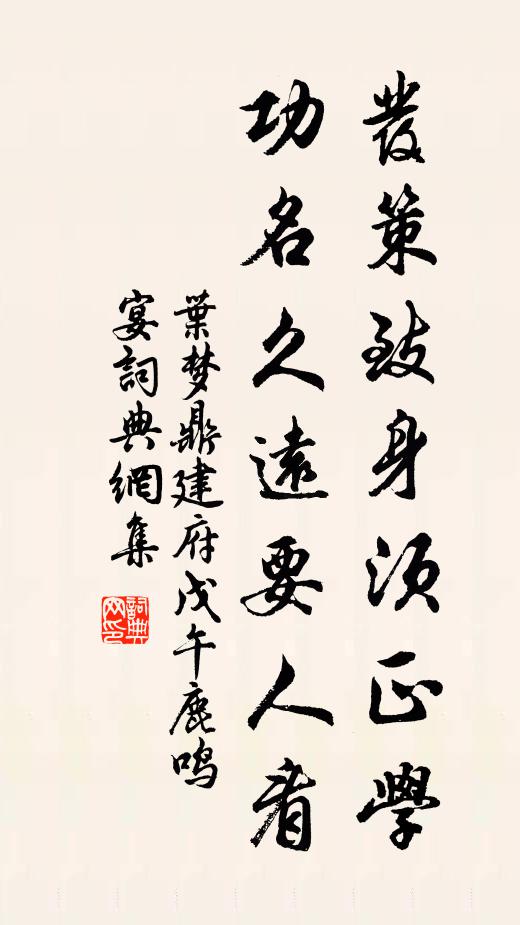 發策致身須正學
功名久遠要人看
葉梦鼎建府戊午鹿鸣
宴詞典網集
詞典网印